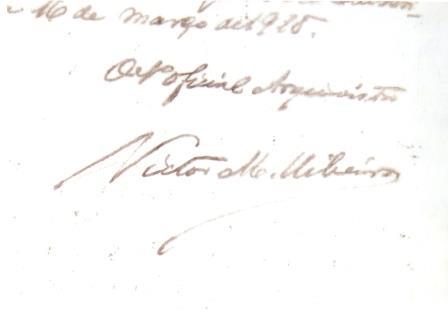 16 de março de 1925.
O 1º oficial Arquivista
Victor M. Ribeiro